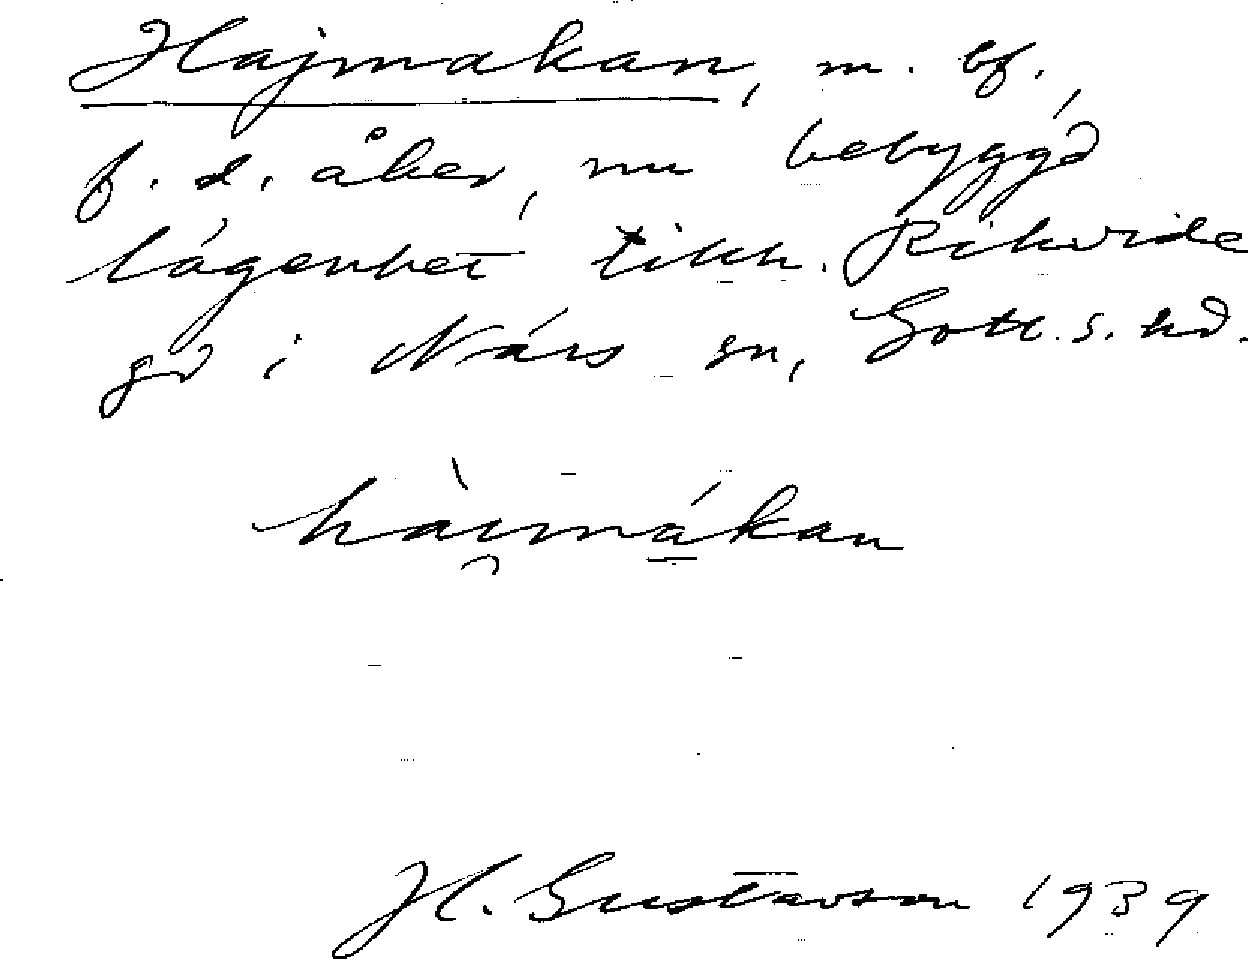 Hajmakan, m. bf.,
f. d. åker, nu bebyggd
lägenhet tillh. Rikvide
gd i Närs sn, Gotl. s. hd.
hài̯mákan
H. Gustavson 1939